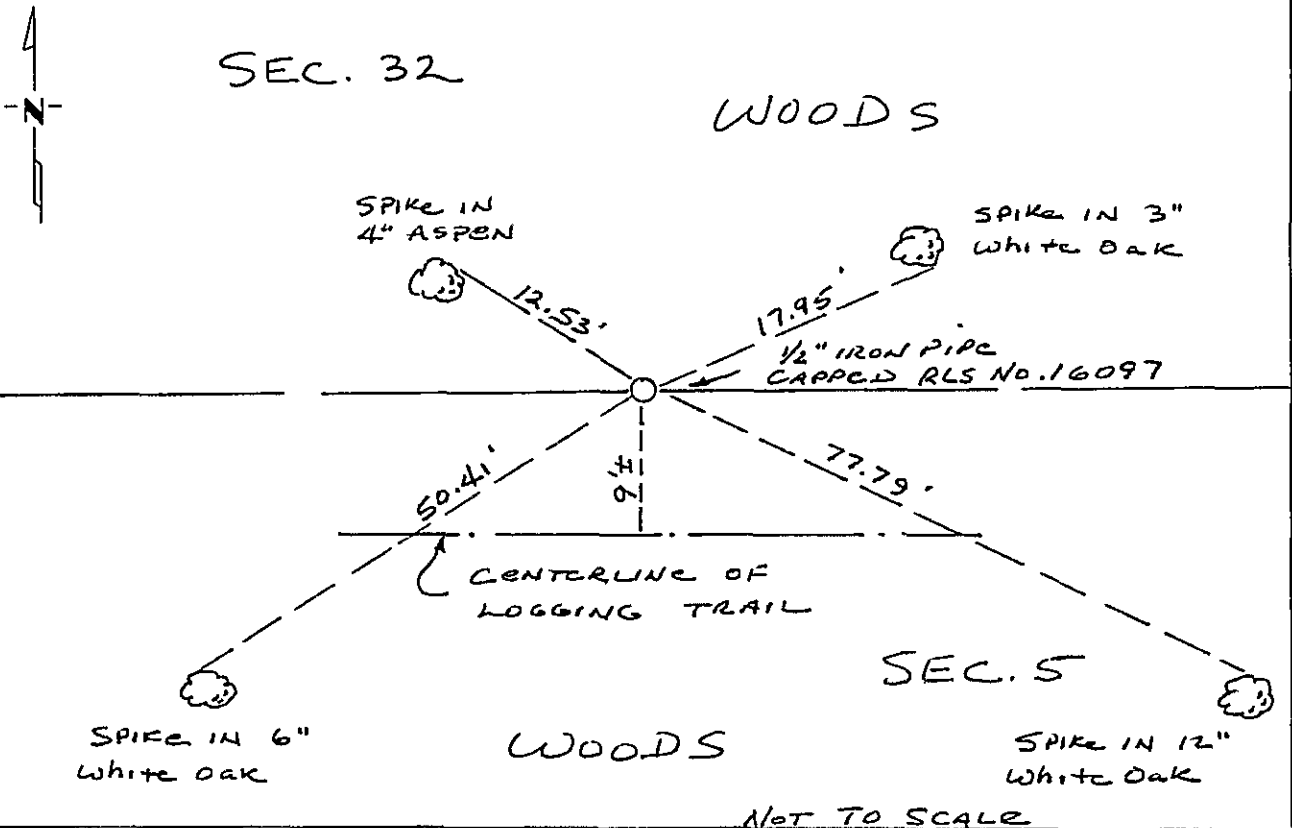 SEC. 32
N
WOODS
SPIKE IN
4" ASPEN
SPIKE IN 3"
White Oak
12.53'
17.95'
1/2" IRON PIPE
CAPPED RLS No.16097
50.41'
9'±
77.79'
CENTERLINE OF
LOGGING TRAIL
SEC. 5
SPIKE IN 6"
White Oak
WOODS
SPIKE IN 12"
White Oak
NOT TO SCALE